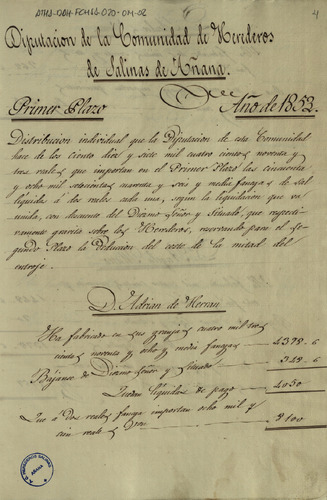 ATHA-DAH-FCHAG-020-014-02
4
Diputacion de la Comunidad de Herederos
de Salinas de Añana.
Primer Plazo
Año de 1853.
Distribucion individual que la Diputacion de esta Comunidad
hace de los ciento diez y siete mil cuatro cientos noventa y
tres reales que importan en el Primer Plazo las cincuenta
y ocho mil setecientas cuarenta y seis y media fanegas de sal
liquidas á dos reales cada una, segun la liquidacion que va
unida, con descuento del Diezmo Señor y Situado, que respecti-
vamente gravita sobre los Herederos, reservando para el se-
gundo Plazo la deducion del coste de la mitad del
entroje.
D. Adrian de Herran
Ha fabricado en sus granjas cuatro mil tres
cientas noventa y ocho y media fanegas
4398.6
Bájanse de Diezmo Señor y Situado
348.6
Quedan líquidas de pago
4050
Que á Dos reales fanega importan ocho mil y
cien reales
8100